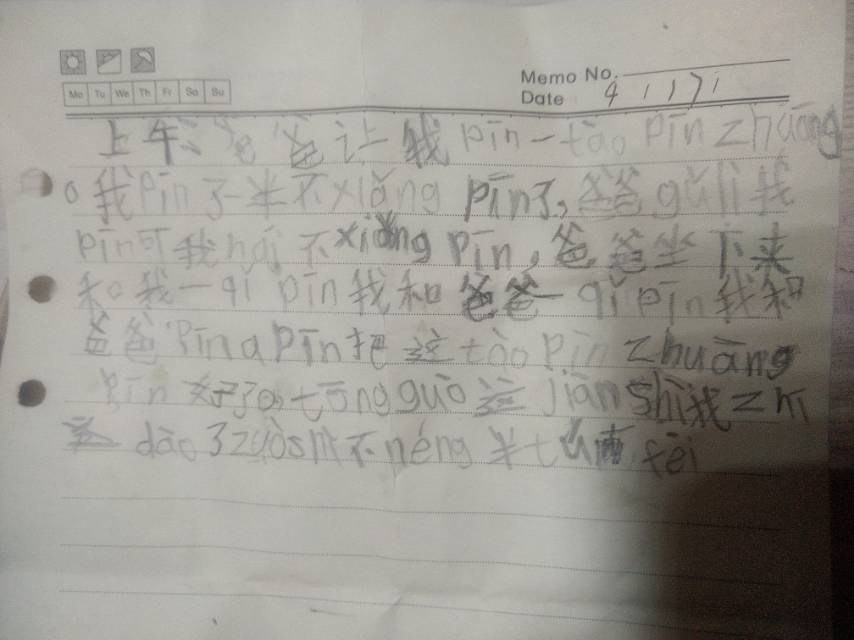 Memo No.
Mo Tu We Th Fr Sa Su
Date
上午,爸爸让我pīn一tào pīn zhuāng
。我pīn了一半不xiǎng pīn了,爸爸gǔ lì我
pīn可我hái不xiǎng pīn,爸爸坐下来
和我一qǐ pīn我和爸爸一qǐ pīn我和
爸爸pīn a pīn把这tào pīn zhuāng
pīn好了。tōng guò这jiàn shì我zhī
dào 了zuò shì不néng半tú ér fèi